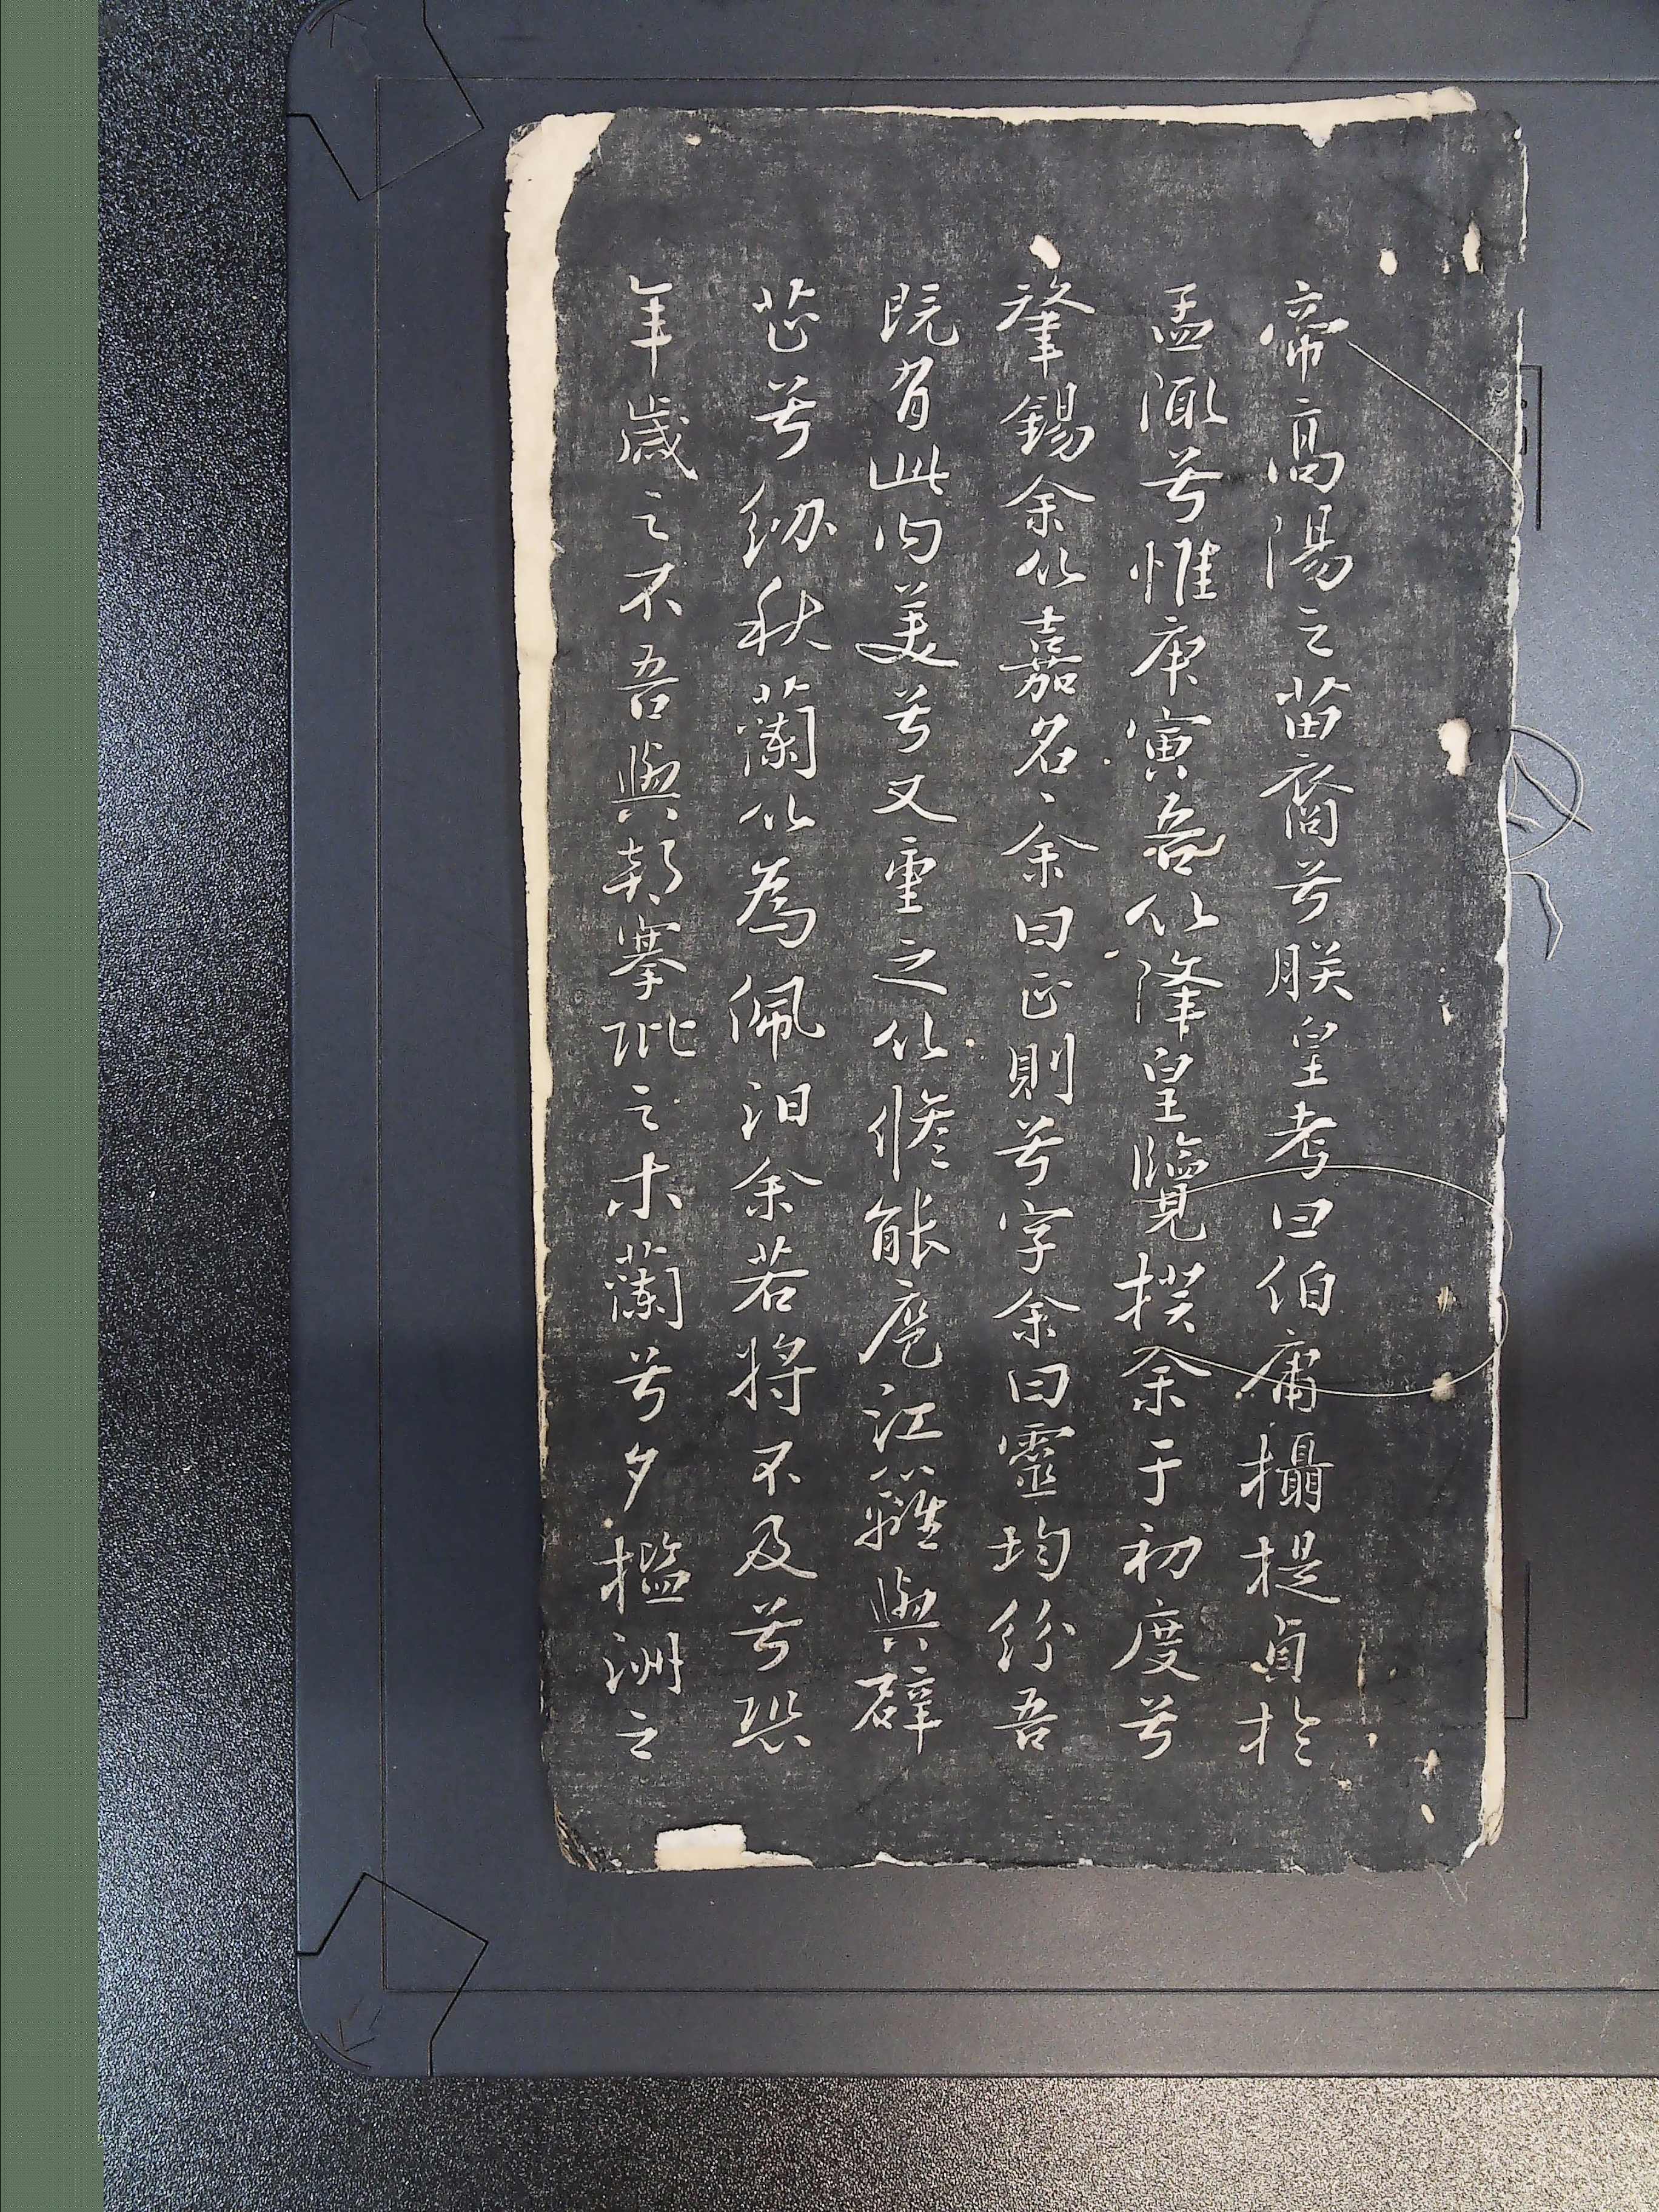 帝高陽之苗裔兮朕皇考曰伯庸攝提貞於
孟陬兮惟庚寅吾以降皇覽揆余于初度兮
肇錫余以嘉名〻余曰正則兮字余曰靈均紛吾
既有此内美兮又重之以脩能扈江蘺與辟
芷兮紉秋蘭以為佩汩余若將不及兮恐
年歲之不吾與朝搴阰之木蘭兮夕㩜洲之